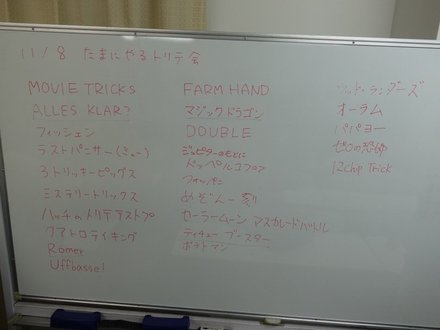 11/8 たまにやるトリテ会
MOVIE TRICKS
ALLES KLAR?
フィッシェン
ラストパニサー(ミュー)
3トリッキーピッグス
ミステリートリックス
ハッチのトリテテストプ
クアトロテイキング
Romer
Uffbasse!
FARM HAND
マジックドラゴン
DOUBLE
ジュピターのもとに
ドッペルコプフ
フォッパン
めぞん一刻
セーラームーン マスカレードバトル
ティチュー ブースター
ポテトマン
オーラム
パパヨー
ゼロの恐怖
12chip Trick